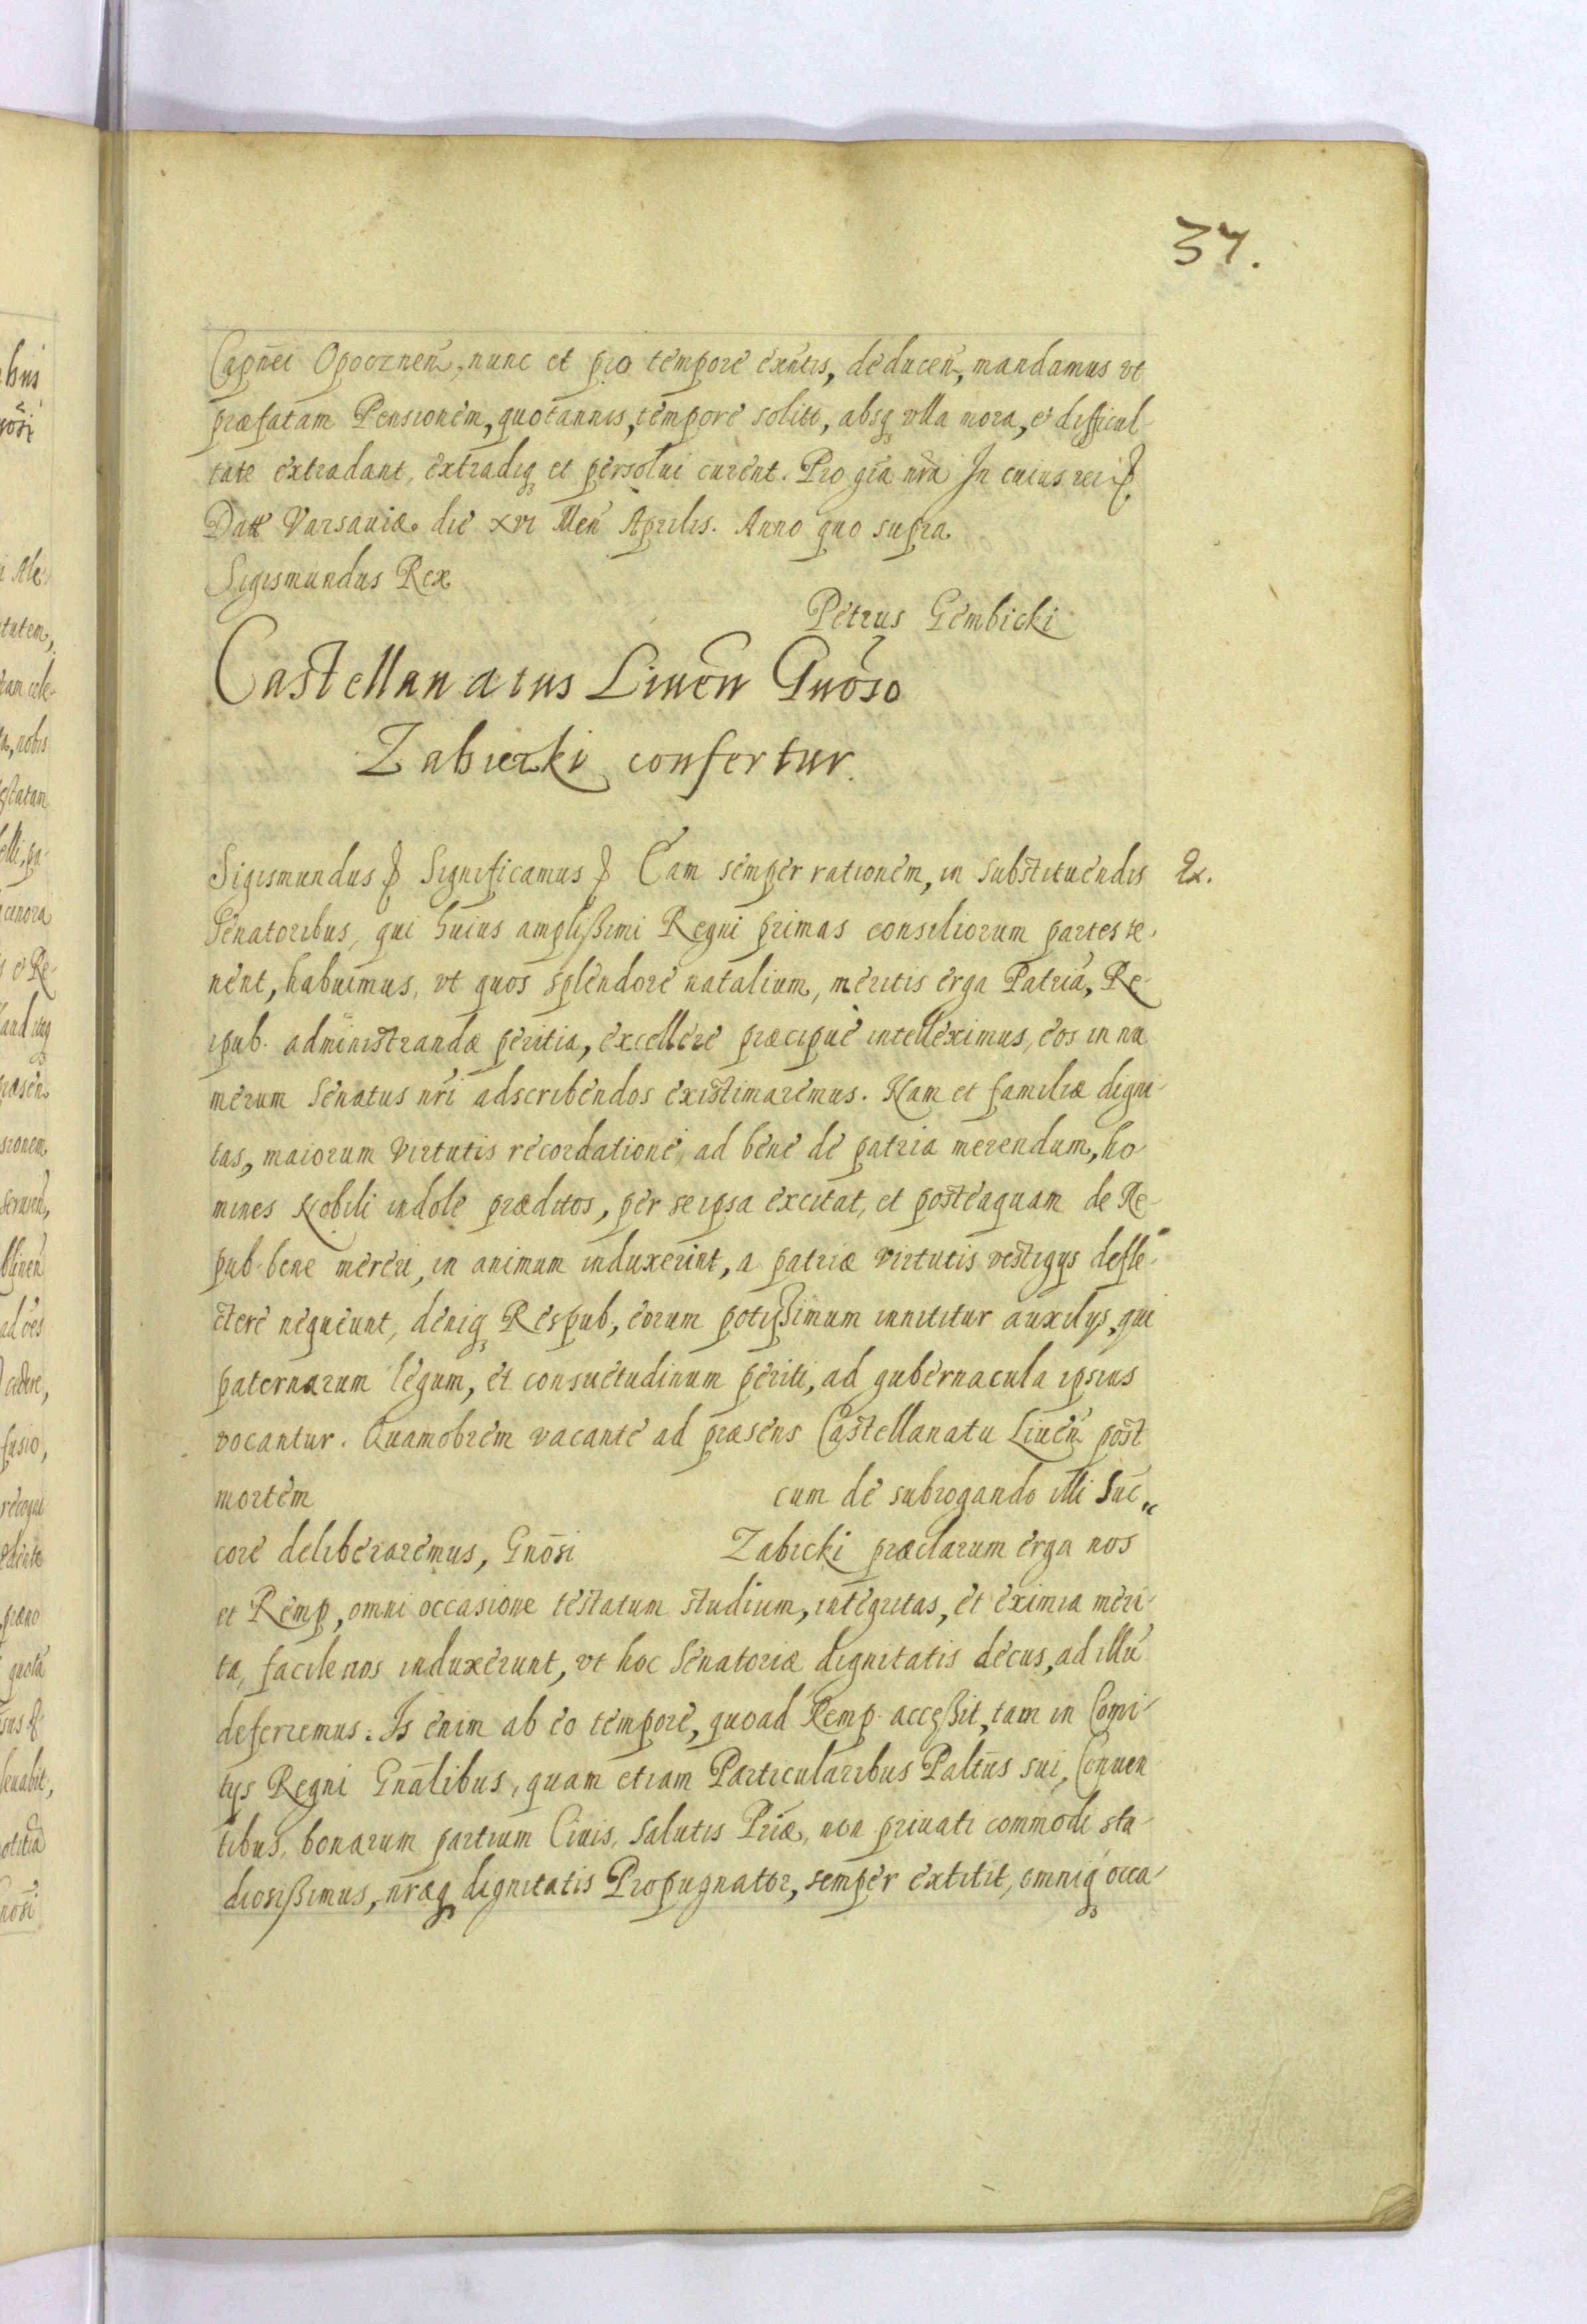 37.
Capnei Opocznen, nunc et pro tempore exntis, deducen, mandamus vt
præfatam Pensionem, quotannis, tempore solito, absq vlla mora, et difficul-
tate extradant, extradiq et persolui curent. Pro gra nra In cuius rei
Datt Varsauiæ die xvi Men Aprilis. Anno quo supra
Sigismundus Rex
Petrus Gembicki
Castellanatus Liuen Gnoso
Zabicki confertur.
Sigismundus Significamus Eam semper rationem, in substituendis
Senatoribus, qui huius amplißimi Regni primas consiliorum partes te-
nent, habuimus, vt quos splendore natalium, meritis erga Patria, Re-
ipub. administrandæ peritia, excellere præcipue intelleximus, eos in nu
merum Senatus nri adscribendos existimaremus. Nam et familiæ digni-
tas, maiorum virtutis recordatione, ad bene de patria merendum, ho-
mines Nobili indole præditos, per se ipsa excitat, et posteaquam de Re-
pub. bene mereri, in animum induxerint, a patriæ virtutis vestigys defle-
ctere nequeunt, deniq Respub, eorum potißimum innititur auxilys, qui
paternarum legum, et consuetudinum periti, ad gubernacula ipsius
vocantur. Quamobrem vacante ad præsens Castellanatu Liuen post
mortem cum de subrogando illi Suc„
core deliberaremus, Gnosi Zabicki præclarum erga nos
et Remp, omni occasione testatum studium, integritas, et eximia meri-
ta, facile nos induxerunt, vt hoc Senatoriæ dignitatis decus, ad illu
deferremus. Is enim ab eo tempore, quo ad Remp. acceßit, tam in Comi-
tys Regni Gnalibus, quam etiam Particularibus Paltus sui, Conuen-
tibus, bonarum partium Ciuis, Salutis Priæ, non priuati commodi stu-
diosißimus, nræq dignitatis Propugnator, semper extitit, omniq occa-